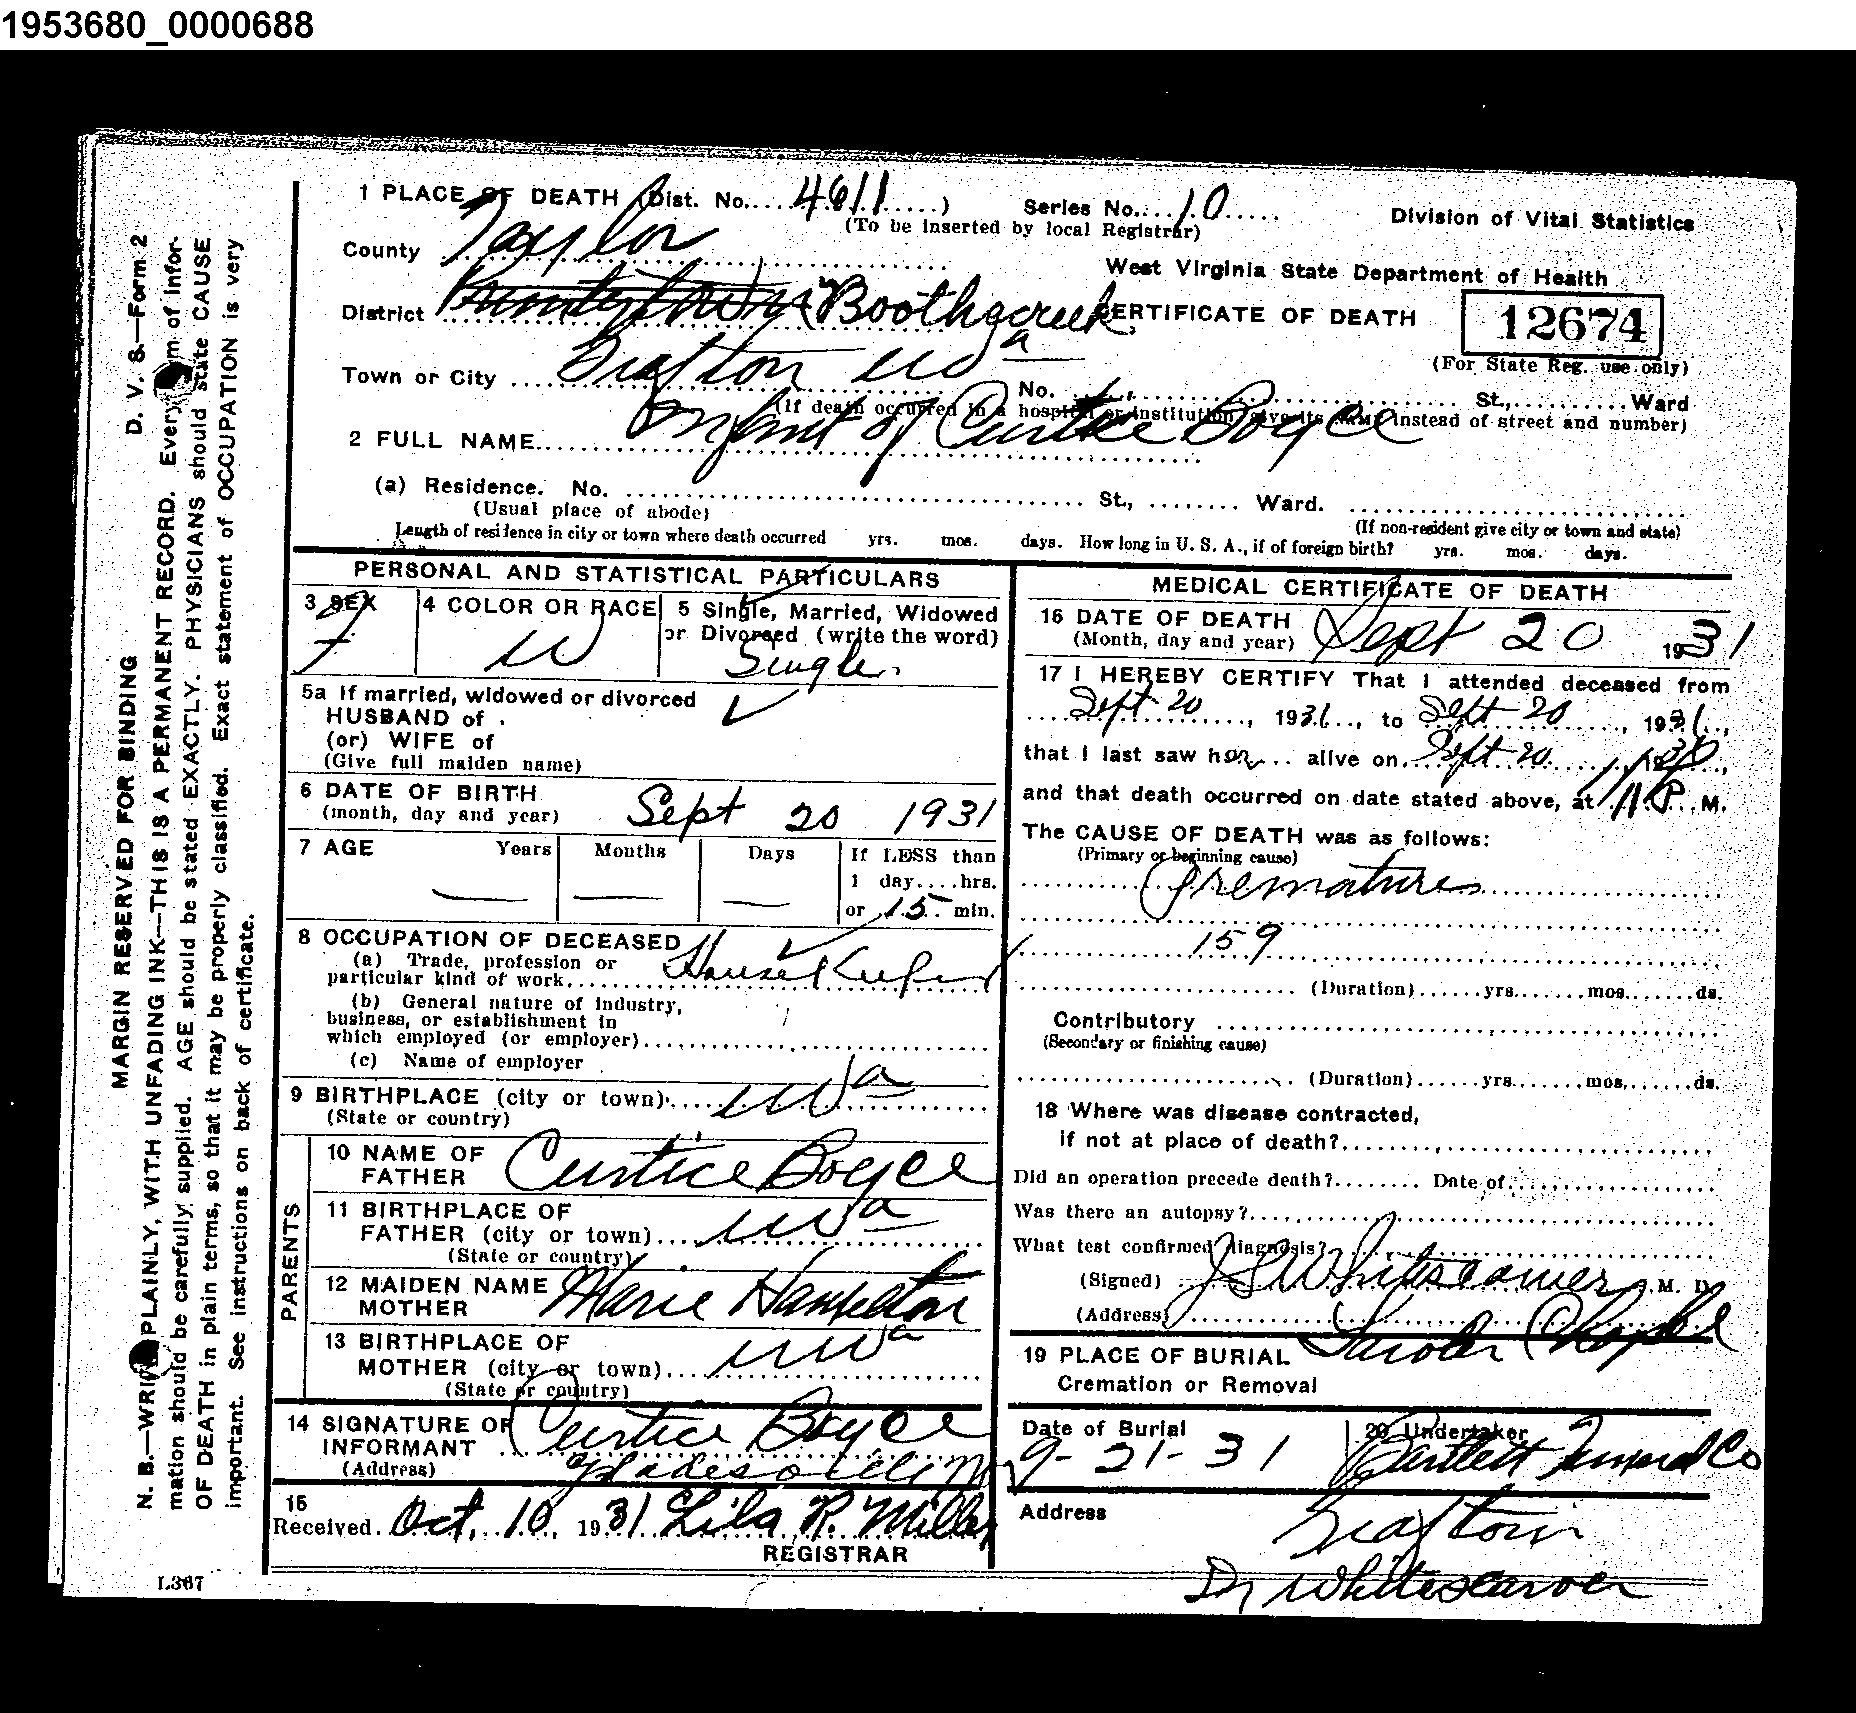 1953680_0000688
1 PLACE OF DEATH (Dist. No. 4611) Series No. 10 Division of Vital Statistics
(To be inserted by local Registrar)
County Taylor
West Virginia State Department of Health
District Boothscreek CERTIFICATE OF DEATH 12674
(For State Reg. use only)
Town or City Grafton W Va No. St., Ward
(If death occurred in a hospital or institution, give its NAME instead of street and number)
2 FULL NAME Infant of Curtice Boyce
(a) Residence. No. St., Ward.
(Usual place of abode) (If non-resident give city or town and state)
Length of residence in city or town where death occurred yrs. mos. days. How long in U. S. A., if of foreign birth? yrs. mos. days.
PERSONAL AND STATISTICAL PARTICULARS
3 SEX
F
4 COLOR OR RACE
W
5 Single, Married, Widowed
or Divorced (write the word)
Single
5a If married, widowed or divorced
HUSBAND of
(or) WIFE of
(Give full maiden name)
6 DATE OF BIRTH
(month, day and year) Sept 20 1931
7 AGE Years Months Days If LESS than
1 day....hrs.
or 15 min.
8 OCCUPATION OF DECEASED
(a) Trade, profession or
particular kind of work HouseKeeper
(b) General nature of industry,
business, or establishment in
which employed (or employer)
(c) Name of employer
9 BIRTHPLACE (city or town) W Va
(State or country)
PARENTS
10 NAME OF
FATHER Curtice Boyce
11 BIRTHPLACE OF
FATHER (city or town) W Va
(State or country)
12 MAIDEN NAME
MOTHER Marie Hamilton
13 BIRTHPLACE OF
MOTHER (city or town) W Va
(State or country)
14 SIGNATURE OF
INFORMANT Curtice Boyce
(Address)
15
Received. Oct. 10 1931 Lila R. Miller
REGISTRAR
MEDICAL CERTIFICATE OF DEATH
16 DATE OF DEATH
(Month, day and year) Sept 20 1931
17 I HEREBY CERTIFY That I attended deceased from
Sept 20, 1931, to Sept 20, 1931,
that I last saw her alive on Sept 20
and that death occurred on date stated above, at 11 P. M.
The CAUSE OF DEATH was as follows:
(Primary or beginning cause)
Premature
159
(Duration) yrs. mos. ds.
Contributory
(Secondary or finishing cause)
(Duration) yrs. mos. ds.
18 Where was disease contracted,
if not at place of death?
Did an operation precede death? Date of
Was there an autopsy?
What test confirmed diagnosis?
(Signed) J S Whitescarver, M. D.
(Address)
19 PLACE OF BURIAL
Cremation or Removal
Date of Burial
9-21-31
20 Undertaker
Bartlett Funeral Co
Address Grafton
Dr Whitescarver
D. V. S.—Form 2
MARGIN RESERVED FOR BINDING
N. B.—WRITE PLAINLY, WITH UNFADING INK—THIS IS A PERMANENT RECORD. Every item of infor-
mation should be carefully supplied. AGE should be stated EXACTLY. PHYSICIANS should state CAUSE
OF DEATH in plain terms, so that it may be properly classified. Exact statement of OCCUPATION is very
important. See instructions on back of certificate.
L367